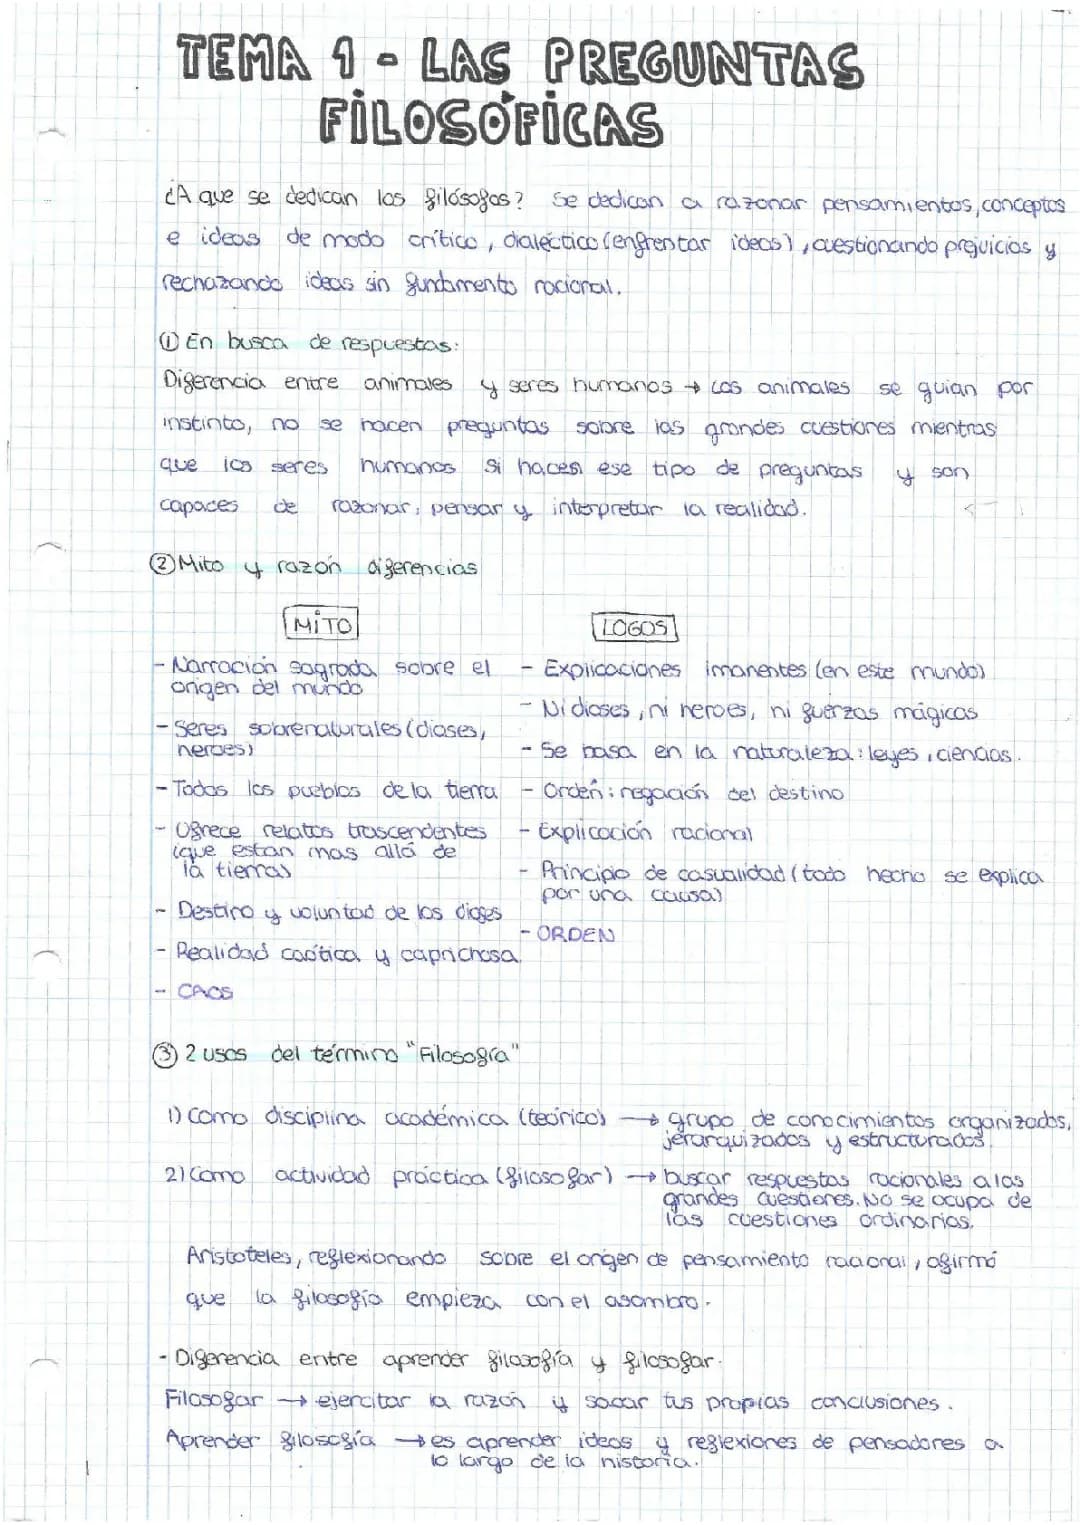 TEMA 1 - LAS PREGUNTAS
FILOSÓFICAS
¿A que se dedican los filósofos? Se dedican a razonar pensamientos, conceptos
e ideas de modo crítico, dialéctico (enfrentar ideas), cuestionando prejuicios y
rechazando ideas sin fundamento racional.
① En busca de respuestas:
Diferencia entre animales y seres humanos → Los animales se guian por
instinto, no se hacen preguntas sobre las grandes cuestiones mientras
que los seres humanos si hacen ese tipo de preguntas y son
capaces de razonar, pensar y interpretar la realidad.
② Mito y razón diferencias
MITO
- Narración sagrada sobre el
origen del mundo
- Seres sobrenaturales (dioses,
heroes)
- Todos los pueblos de la tierra
- Ofrece relatos trascendentes
(que estan mas allá de
la tierra)
- Destino y voluntad de los dioses
- Realidad caótica y caprichosa.
- CAOS
LOGOS
- Explicaciones imanentes (en este mundo)
- Ni dioses, ni heroes, ni fuerzas mágicas
- Se basa en la naturaleza: leyes, ciencias.
- Orden: negación del destino
- Explicación racional
- Principio de casualidad (todo hecho se explica
por una causa)
- ORDEN
③ 2 usos del término "Filosofía"
1) Como disciplina académica (teórico) → grupo de conocimientos organizados,
jerarquizados y estructurados.
2) Como actividad práctica (filosofar) → buscar respuestas racionales a las
grandes cuestiones. No se ocupa de
las cuestiones ordinarias.
Aristoteles, reflexionando sobre el origen de pensamiento racional, afirmó
que la filosofía empieza con el asombro.
- Diferencia entre aprender filosofía y filosofar.
Filosofar → ejercitar la razón y sacar tus propias conclusiones.
Aprender filosofía → es aprender ideas y reflexiones de pensadores a
lo largo de la historia.